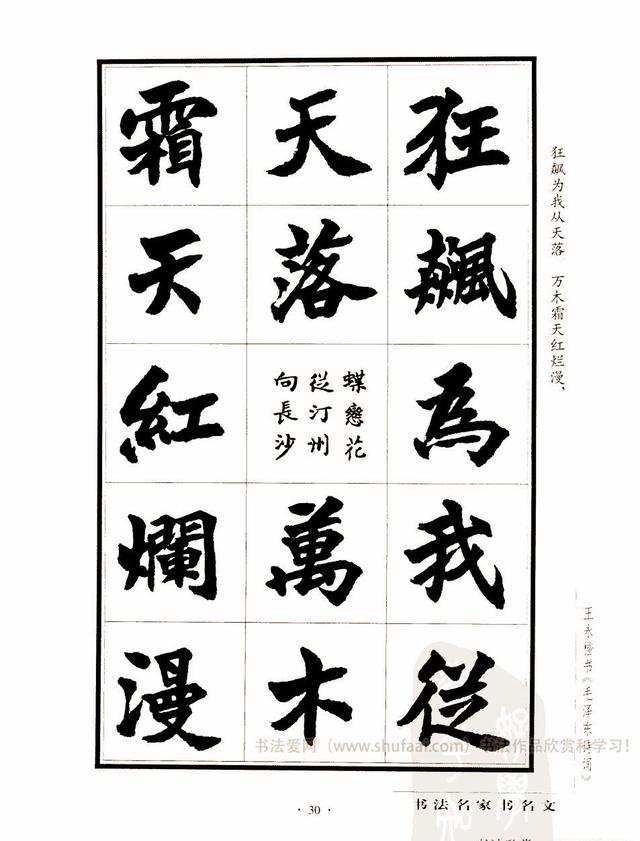 狂飆为我从天落 万木霜天红烂漫、
狂飆為我從
天落
蝶戀花
從汀州
向長沙
萬木
霜天紅爛漫
书法爱网(www.shufaai.com)书法作品欣赏和学习!
·30·
书法名家书名文